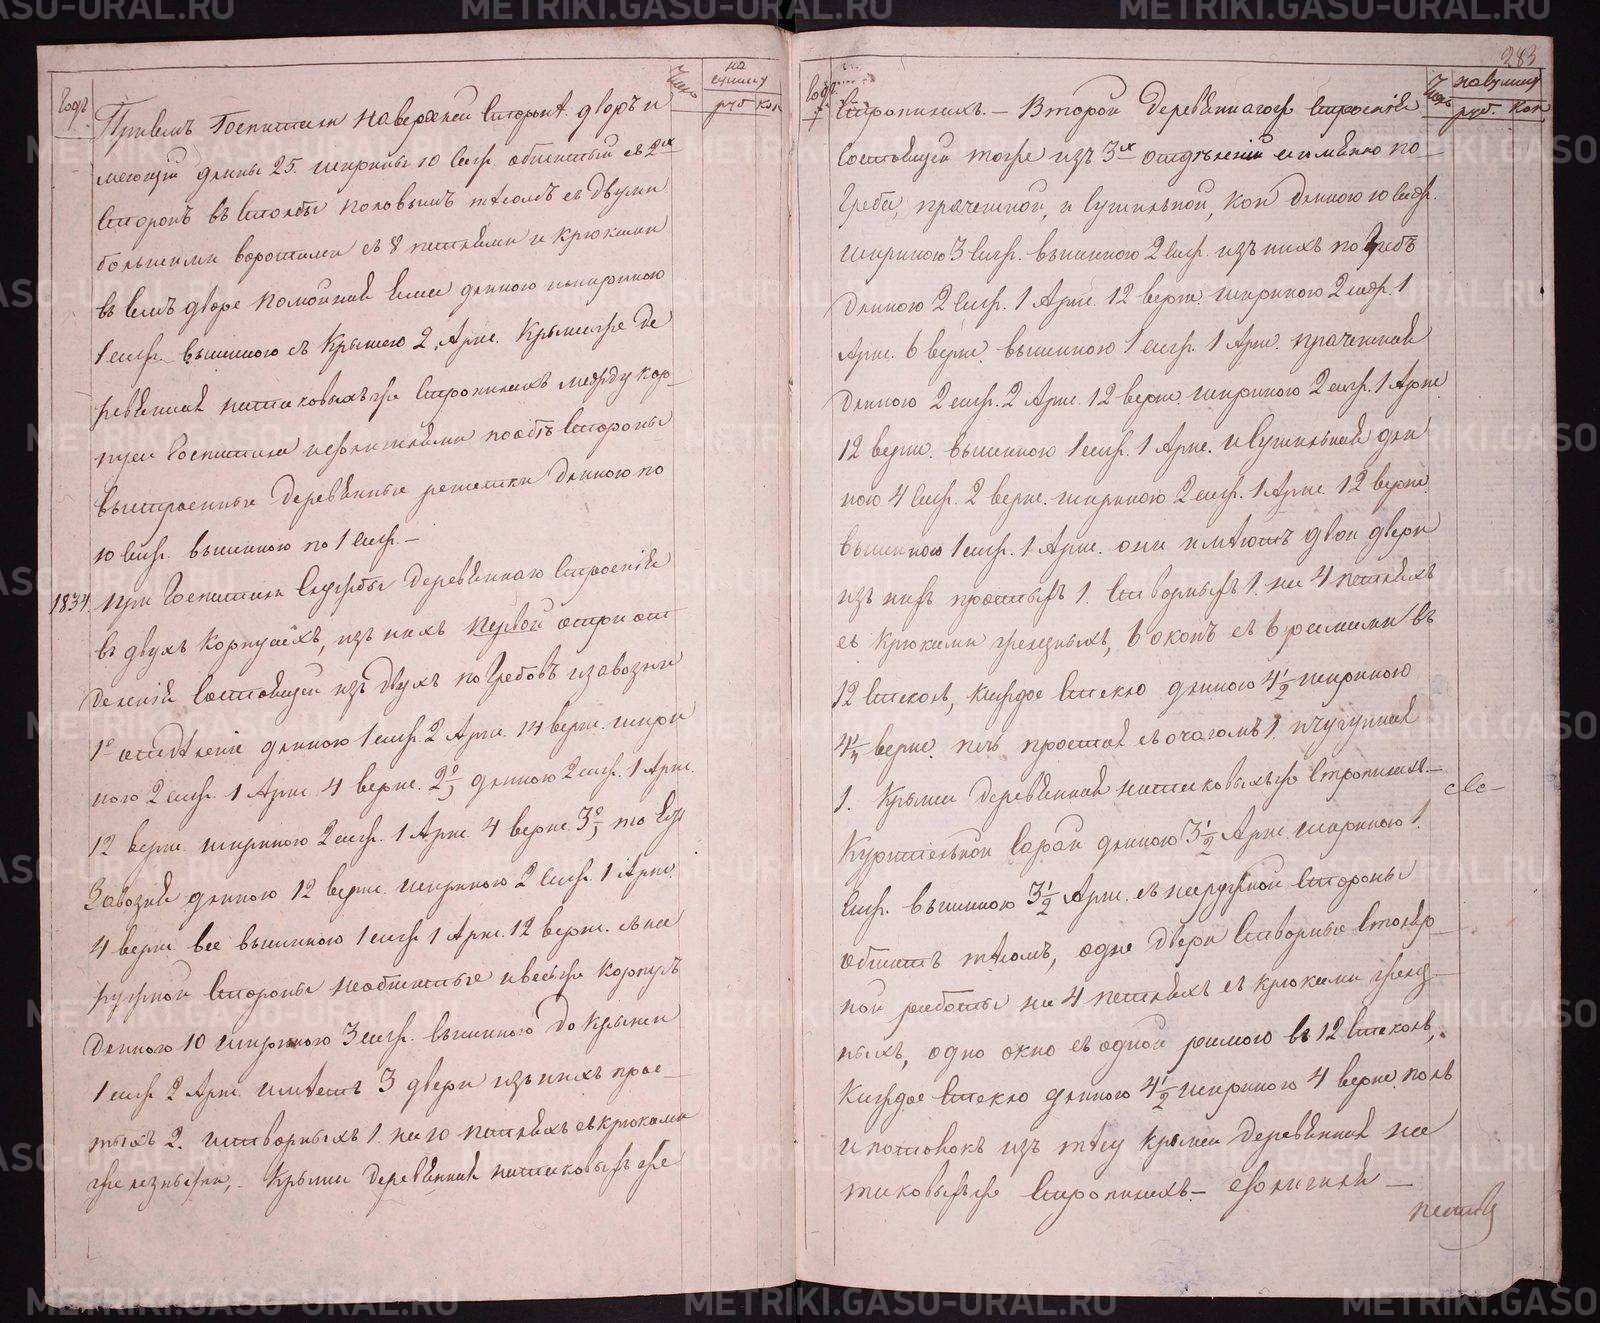 Годъ
Число
на сумму
руб коп
Привемъ Госпитали на верхней сторонѣ дворъ и
меющій длины 25. ширины 10 саж. обнитый съ 2х
сторонъ въ столбы половымъ тѣсомъ съ двумя
большими воротами съ 8 петлями и крюками
въ семъ дворе помойная яма длиною и шириною
1 саж. вышиною съ крышею 2 Арш. Крыша же де
ревянная на таковыхъ же стропилахъ между кор
пуса Госпиталя и с обѣ стороны
выстроенные деревянные решетки длиною по
10 саж. вышиною по 1 саж. —
1834. При Госпитали службы деревяннаго строенія
въ двухъ корпусахъ, изъ нихъ первой о три от
деленія состоящей изъ двухъ погребовъ и завозни
1е отдѣленіе длиною 1 саж. 2 Арш. 14 верш. шири
ною 2 саж. 1 Арш 4 верш. 2е, длиною 2 саж. 1 Арш.
12 верш. шириною 2 саж. 1 Арш 4 верш. 3е,
Завозня длиною 12 верш. шириною 2 саж. 1 Арш.
4 верш все вышиною 1 саж 1 Арш. 12 верш. съ на
ружной стороны необшитые и весь же корпусъ
длиною 10 шириною 3 саж. вышиною до крыши
1 саж 2 Арш. имѣетъ 3 двери изъ нихъ прос-
тыхъ 2. створныхъ 1 на 10 петляхъ съ крюками
железными, - Крыша деревянная на таковыхъ же
283
Годъ
Число
на сумму
руб. коп
стропилахъ. — Второй деревяннаго же строенія
состоящей тоже изъ 3х отделеній а именно по-
греба, прачешной, и сушильной, кои длиною 10 саж.
шириною 3 саж. вышиною 2 саж. изъ нихъ погребъ
длиною 2 саж. 1 Арш. 12 верш. шириною 2 саж. 1
Арш. 6 верш. вышиною 1 саж. 1 Арш. прачешная
длиною 2 саж. 2 Арш. 12 верш. шириною 2 саж. 1 Арш
12 верш. вышиною 1 саж. 1 Арш. и сушильная дли
ною 4 саж. 2 верш. шириною 2 саж. 1 Арш. 12 верш.
вышиною 1 саж. 1 Арш. они имѣютъ двои двери
изъ нихъ простыхъ 1. створныхъ 1. на 4 петляхъ
съ крюками железныхъ, 6 оконъ съ 6 рамами въ
12 стеколъ, каждое стекло длиною 4 1/2 шириною
4 1/4 верш. печь простая съ очагомъ 1. и чугунная
1. Крыша деревянная на таковыхъ же стропилахъ. —
Курительной сарай длиною 3 1/2 Арш шириною 1.
саж. вышиною 3 1/2 Арш. съ наружной стороны
обшитъ тѣсомъ, одне двери створные столяр-
ной работы на 4 петляхъ съ крюками желез
ныхъ, одно окно съ одной рамою въ 12 стеколъ,
каждое стекло длиною 4 1/2 шириною 4 верш. полъ
и потолокъ изъ тѣсу крыша деревянная на
таковыхъ же стропилахъ. —
METRIKI.GASO-URAL.RU